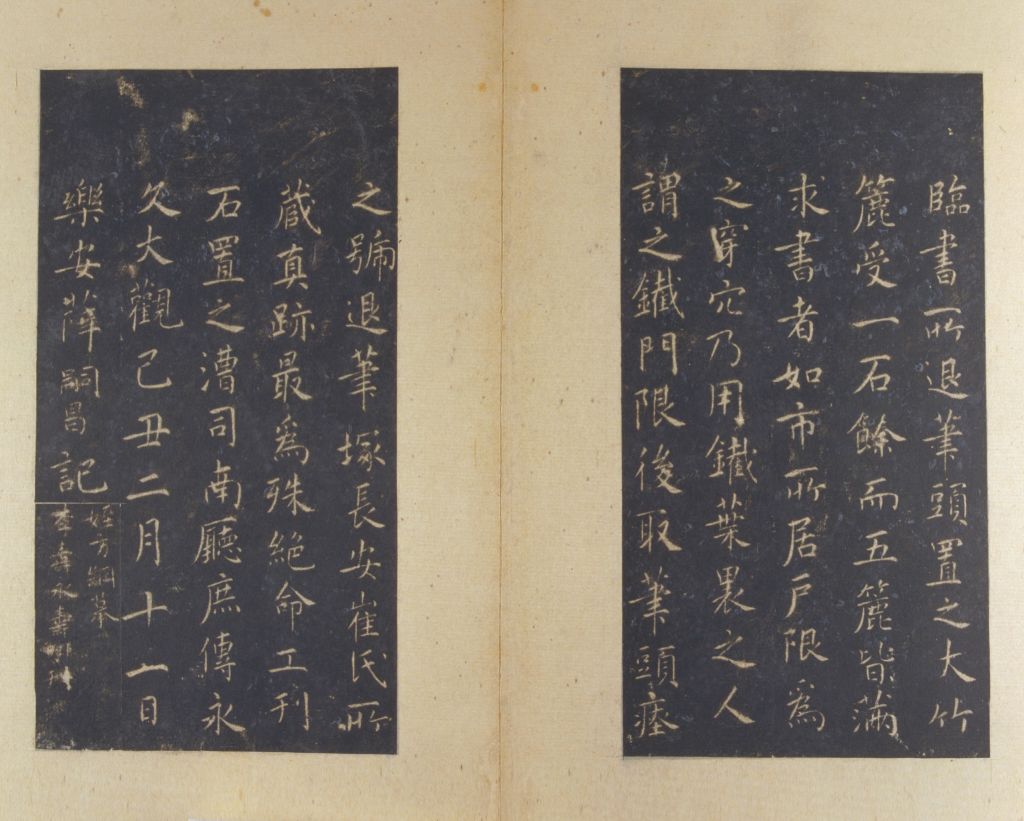 臨書所退筆頭置之大竹
簏受一石餘而五簏皆滿
求書者如市所居戶限爲
之穿穴乃用鐵葉裹之人
謂之鐵門限後取筆頭瘞
之號退筆塚長安崔氏所
蔵真跡最爲殊絶命工刊
石置之漕司南廳庶傳永
久大觀己丑二月十一日
樂安薛嗣昌記
姪方綱摹
李壽永壽